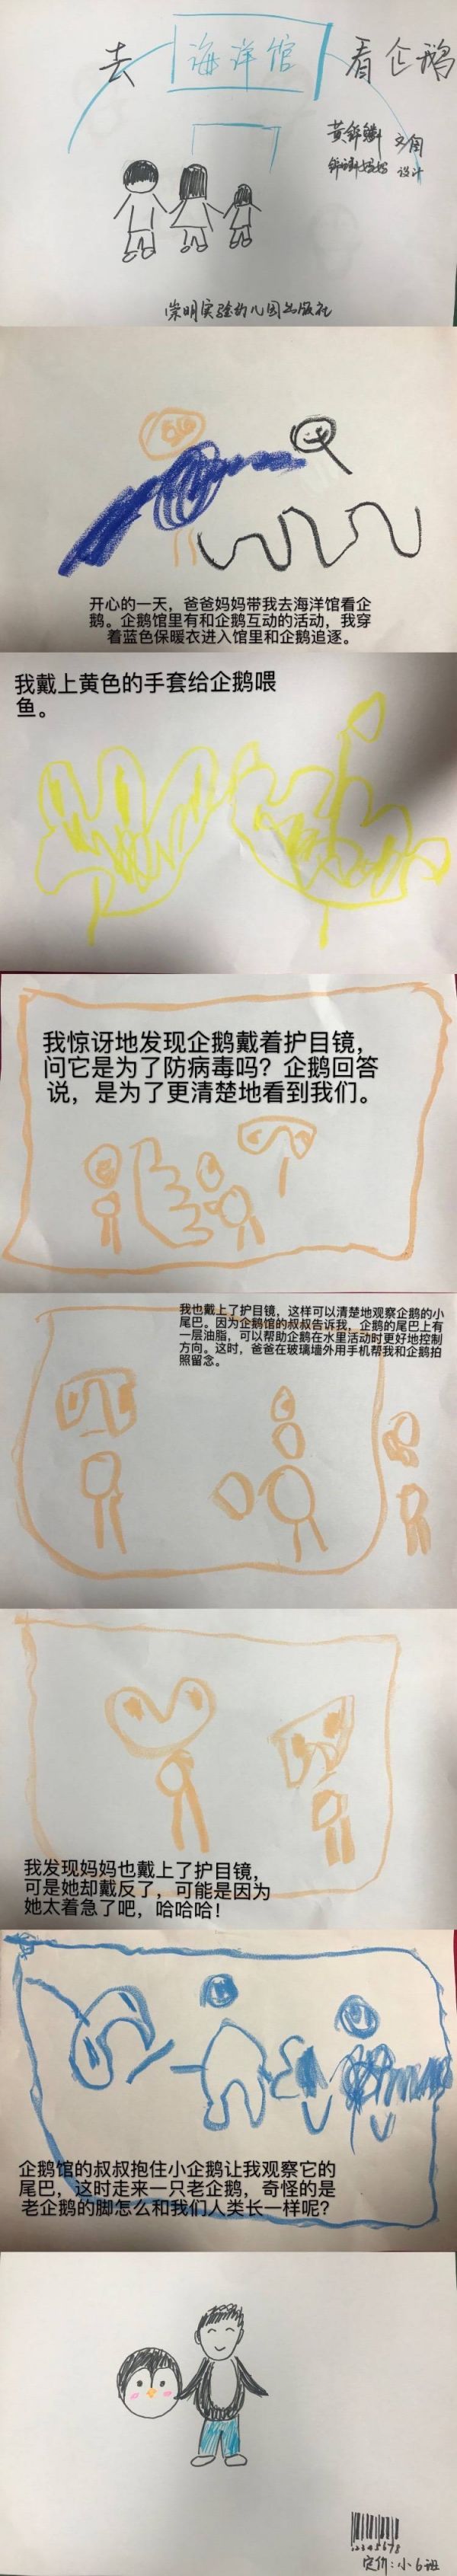 去 海洋馆 看企鹅
黄 文图
妈妈 设计
崇明实验幼儿园出版社
开心的一天，爸爸妈妈带我去海洋馆看企
鹅。企鹅馆里有和企鹅互动的活动，我穿
着蓝色保暖衣进入馆里和企鹅追逐。
我戴上黄色的手套给企鹅喂
鱼。
我惊讶地发现企鹅戴着护目镜，
问它是为了防病毒吗？企鹅回答
说，是为了更清楚地看到我们。
我也戴上了护目镜，这样可以清楚地观察企鹅的小
尾巴。因为企鹅馆的叔叔告诉我，企鹅的尾巴上有
一层油脂，可以帮助企鹅在水里活动时更好地控制
方向。这时，爸爸在玻璃墙外用手机帮我和企鹅拍
照留念。
我发现妈妈也戴上了护目镜，
可是她却戴反了，可能是因为
她太着急了吧，哈哈哈！
企鹅馆的叔叔抱住小企鹅让我观察它的
尾巴，这时走来一只老企鹅，奇怪的是
老企鹅的脚怎么和我们人类长一样呢？
12345678
定价：小6班